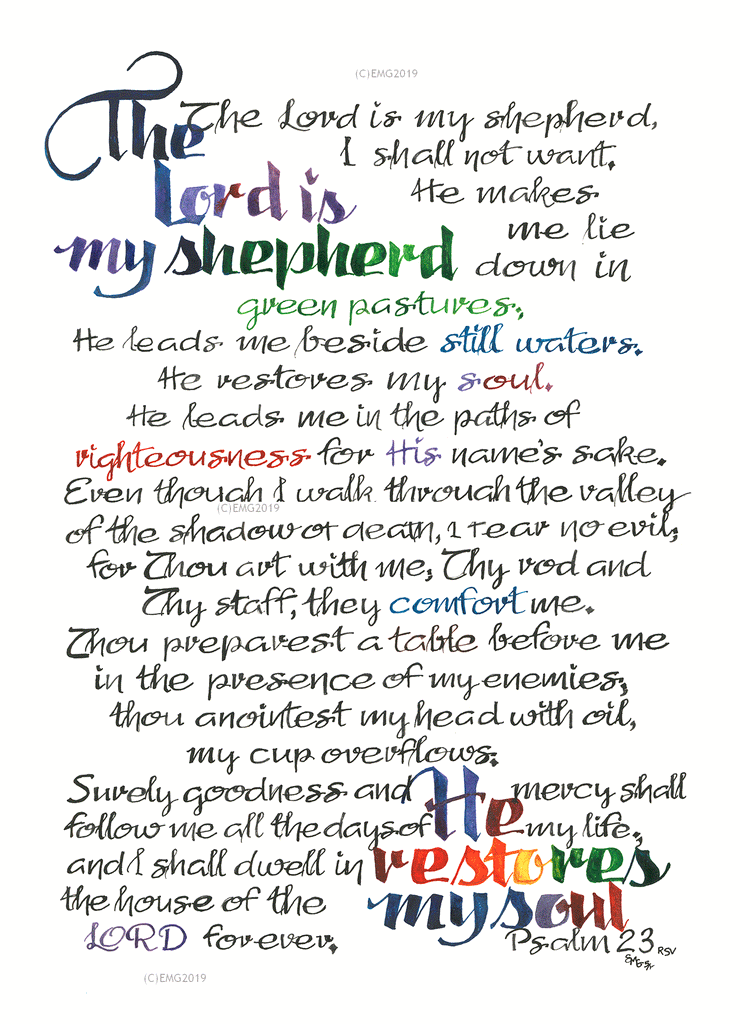 (C)EMG2019
The Lord is my shepherd
The Lord is my shepherd,
I shall not want.
He makes
me lie
down in
green pastures;
He leads me beside still waters.
He restores my soul.
He leads me in the paths of
righteousness for His name's sake.
Even though I walk through the valley
(C)EMG2019
of the shadow of death, I fear no evil;
for Thou art with me; Thy rod and
Thy staff, they comfort me.
Thou preparest a table before me
in the presence of my enemies;
thou anointest my head with oil,
my cup overflows.
Surely goodness and mercy shall
follow me all the days of my life;
and I shall dwell in
the house of the
LORD for ever.
He
restores
my soul
Psalm 23 RSV
(C)EMG2019